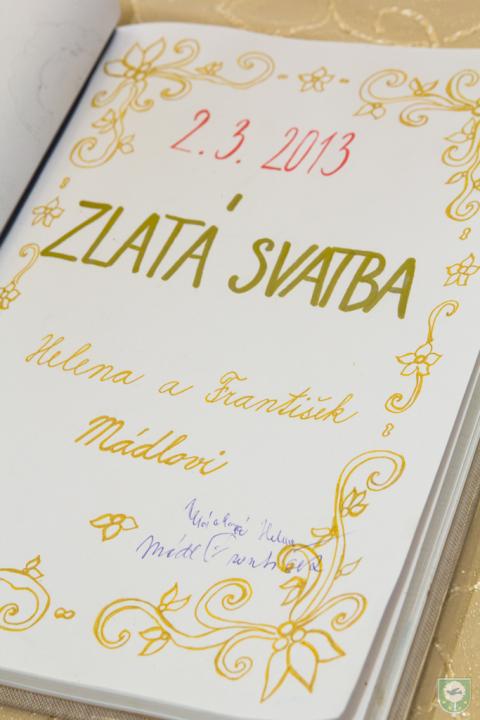 2.3. 2013
ZLATÁ SVATBA
Helena a František
Mádlovi
Mádlová Helena
Mádl František